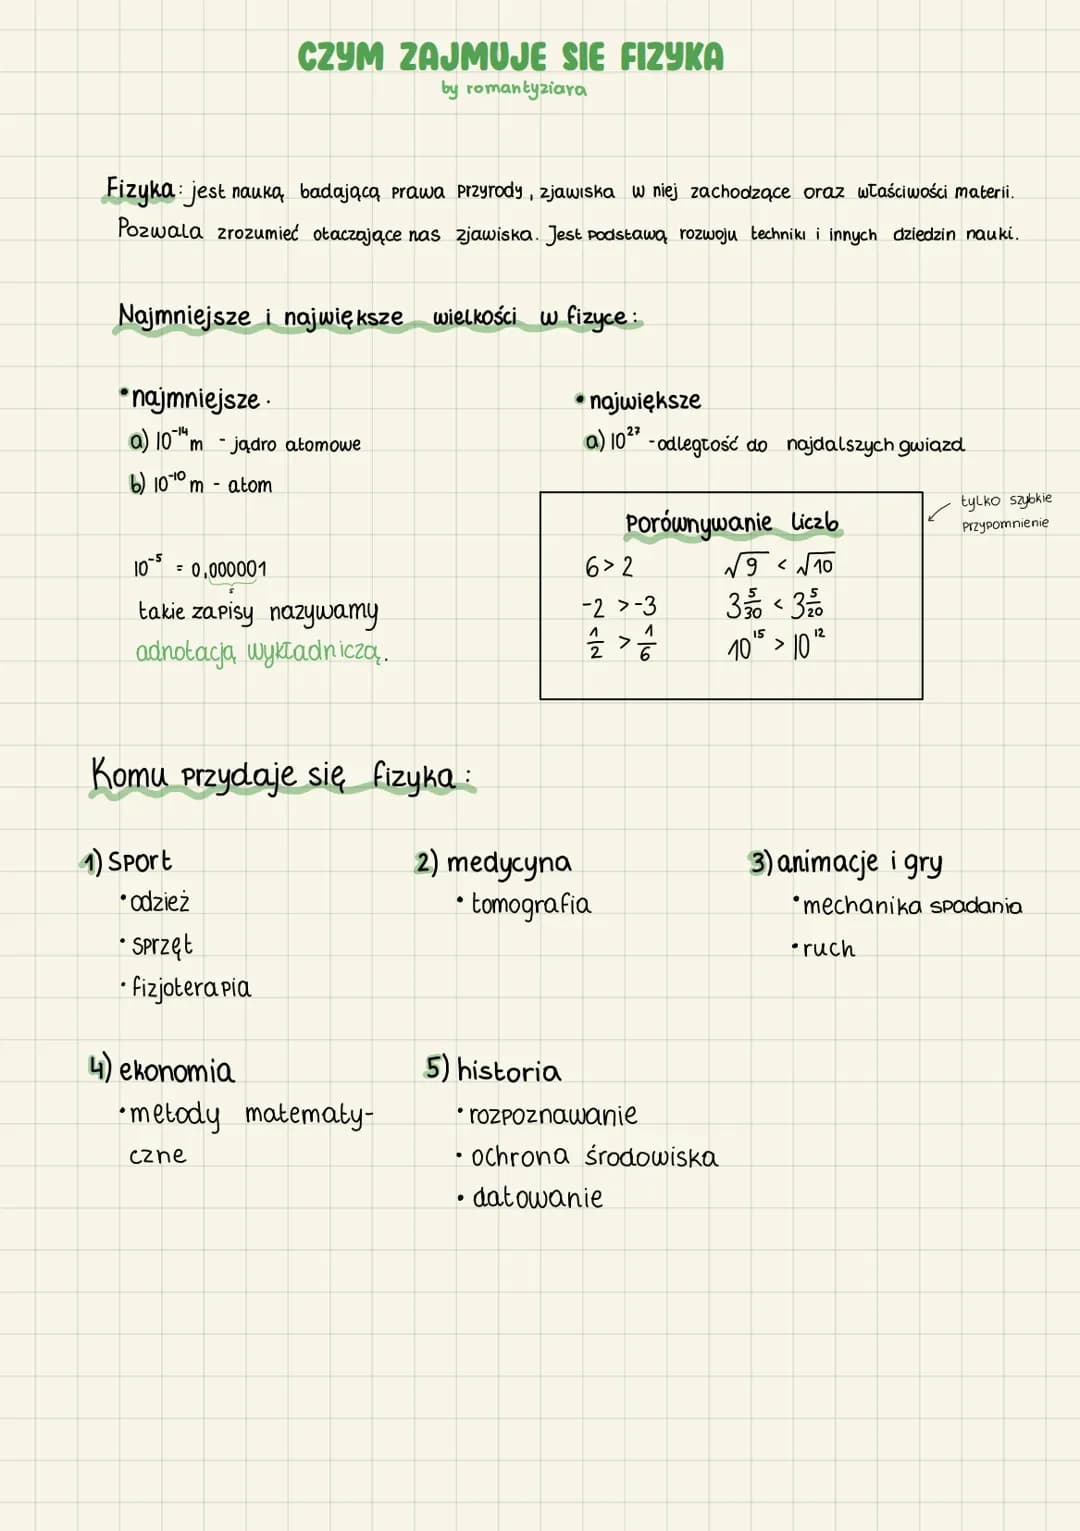 CZYM ZAJMUJE SIE FIZYKA
by romantyziara
Fizyka: jest nauką badającą prawa przyrody, zjawiska w niej zachodzące oraz właściwości materii.
Pozwala zrozumieć otaczające nas zjawiska. Jest podstawą rozwoju techniki i innych dziedzin nauki.
Najmniejsze i największe wielkości w fizyce:
• najmniejsze.
a) 10⁻¹⁴ m - jądro atomowe
b) 10⁻¹⁰ m - atom
10⁻⁵ = 0,000001
5
takie zapisy nazywamy
adnotacją wykładniczą.
• największe
a) 10²⁷ - odległość do najdalszych gwiazd
tylko szybkie
przypomnienie
porównywanie liczb
6 > 2 √9 < √10
-2 > -3 3 5/30 < 3 5/20
1/2 > 1/6 10¹⁵ > 10¹²
Komu przydaje się fizyka:
1) sport
• odzież
• sprzęt
• fizjoterapia
2) medycyna
• tomografia
3) animacje i gry
• mechanika spadania
• ruch
4) ekonomia
• metody matematy-
czne
5) historia
• rozpoznawanie
• ochrona środowiska
• datowanie